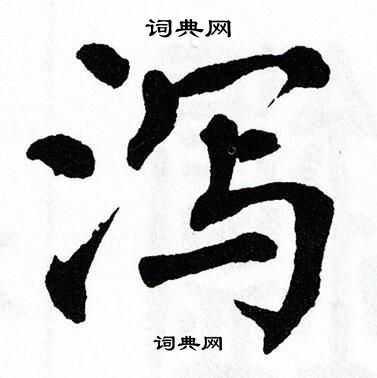 词典网
泻
词典网